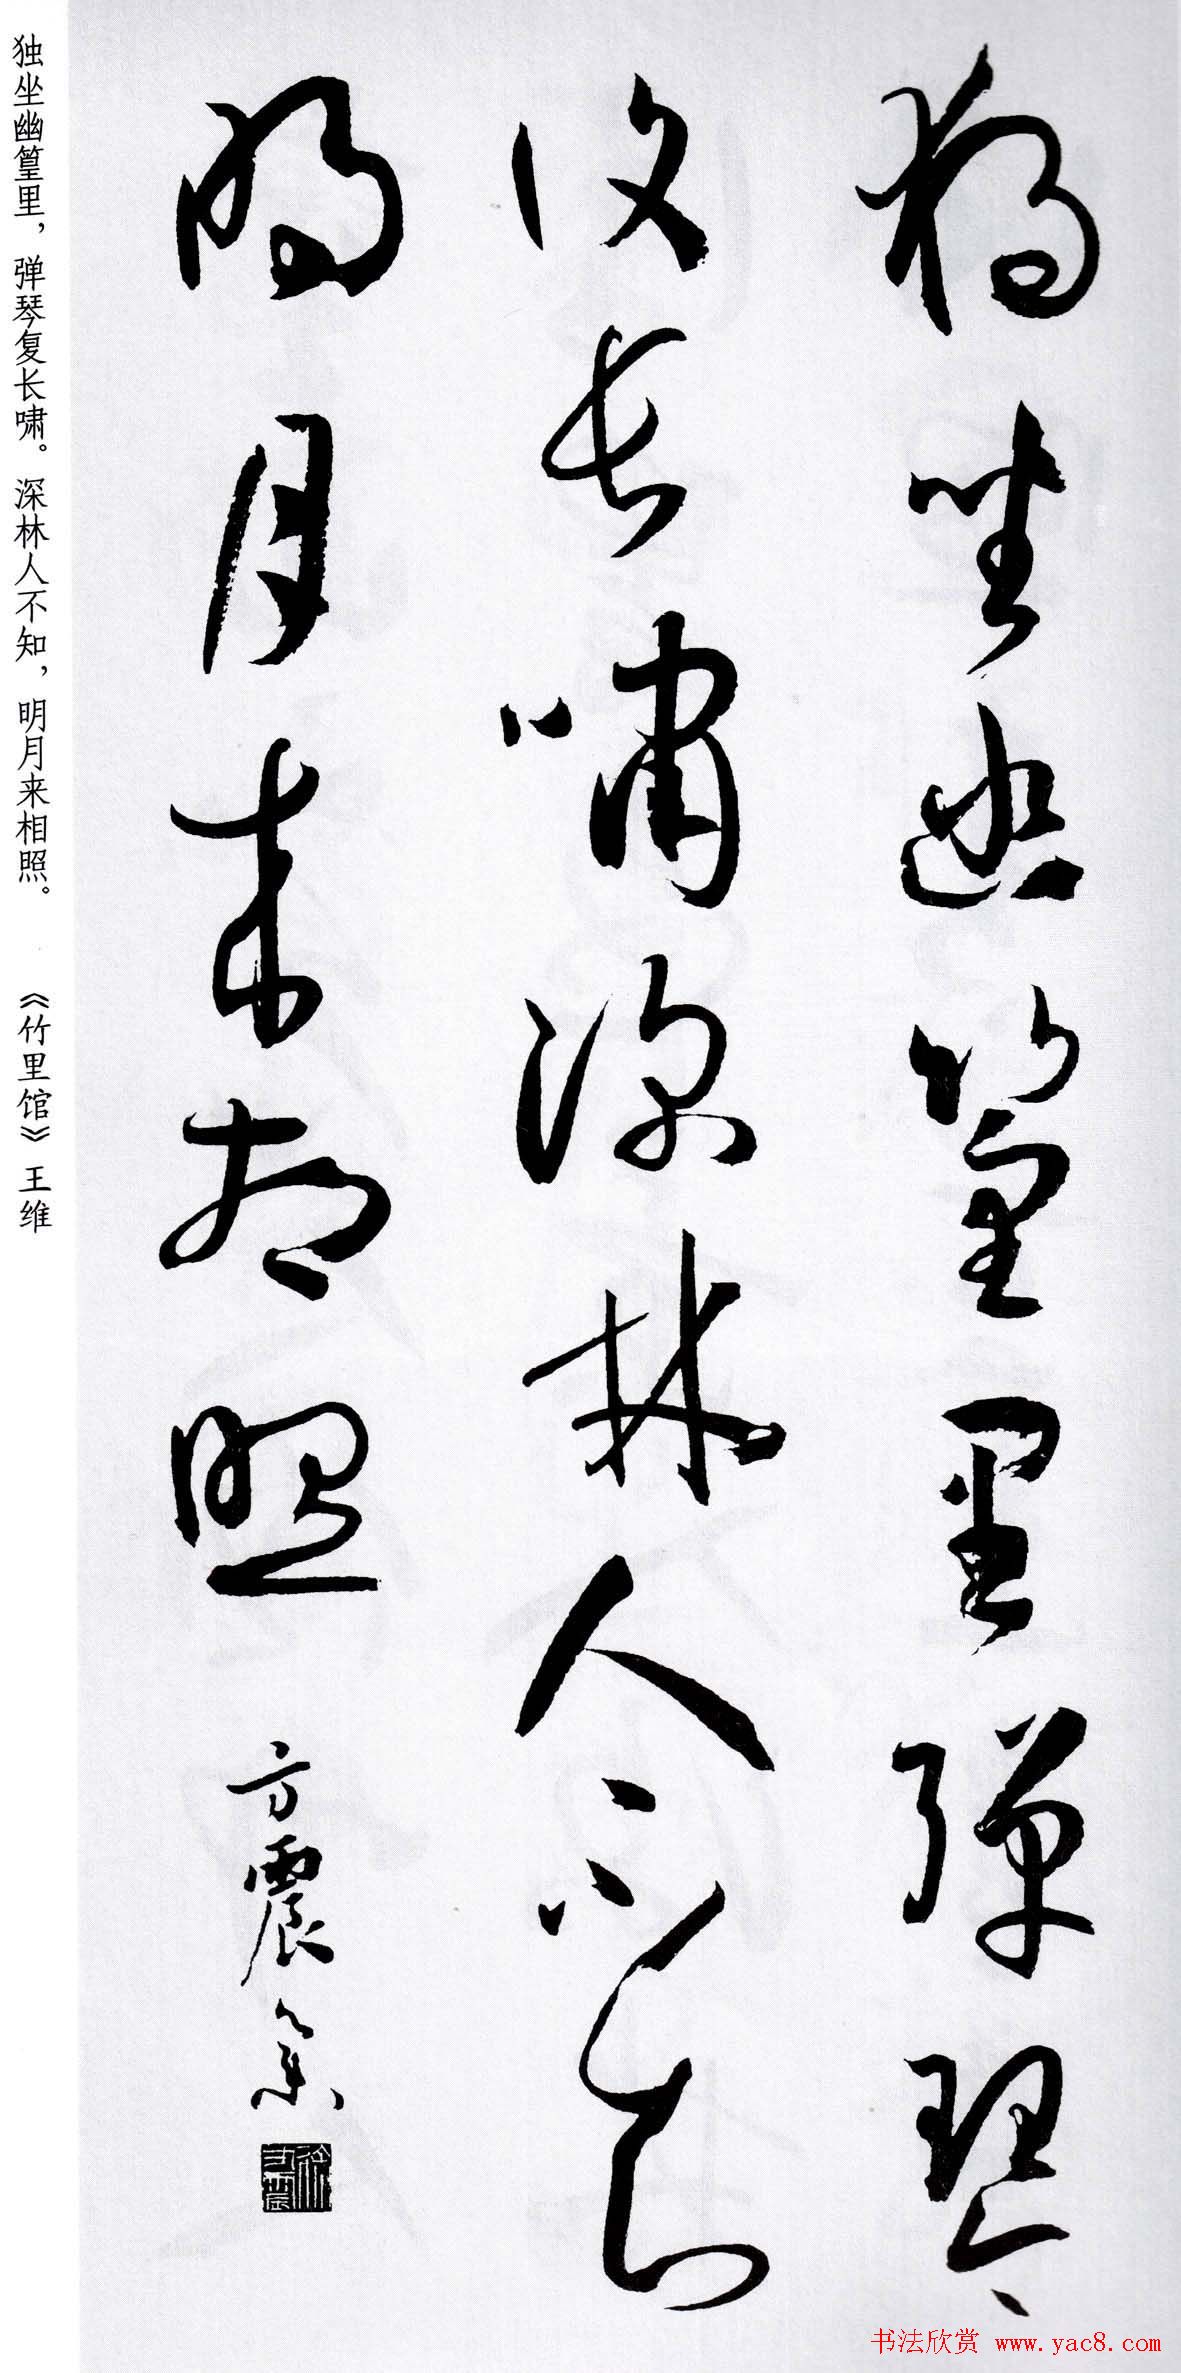 独坐幽篁里弹琴
复长啸深林人不知
明月来相照
方震
独坐幽篁里，弹琴复长啸。深林人不知，明月来相照。 《竹里馆》王维
书法欣赏 www.yac8.com